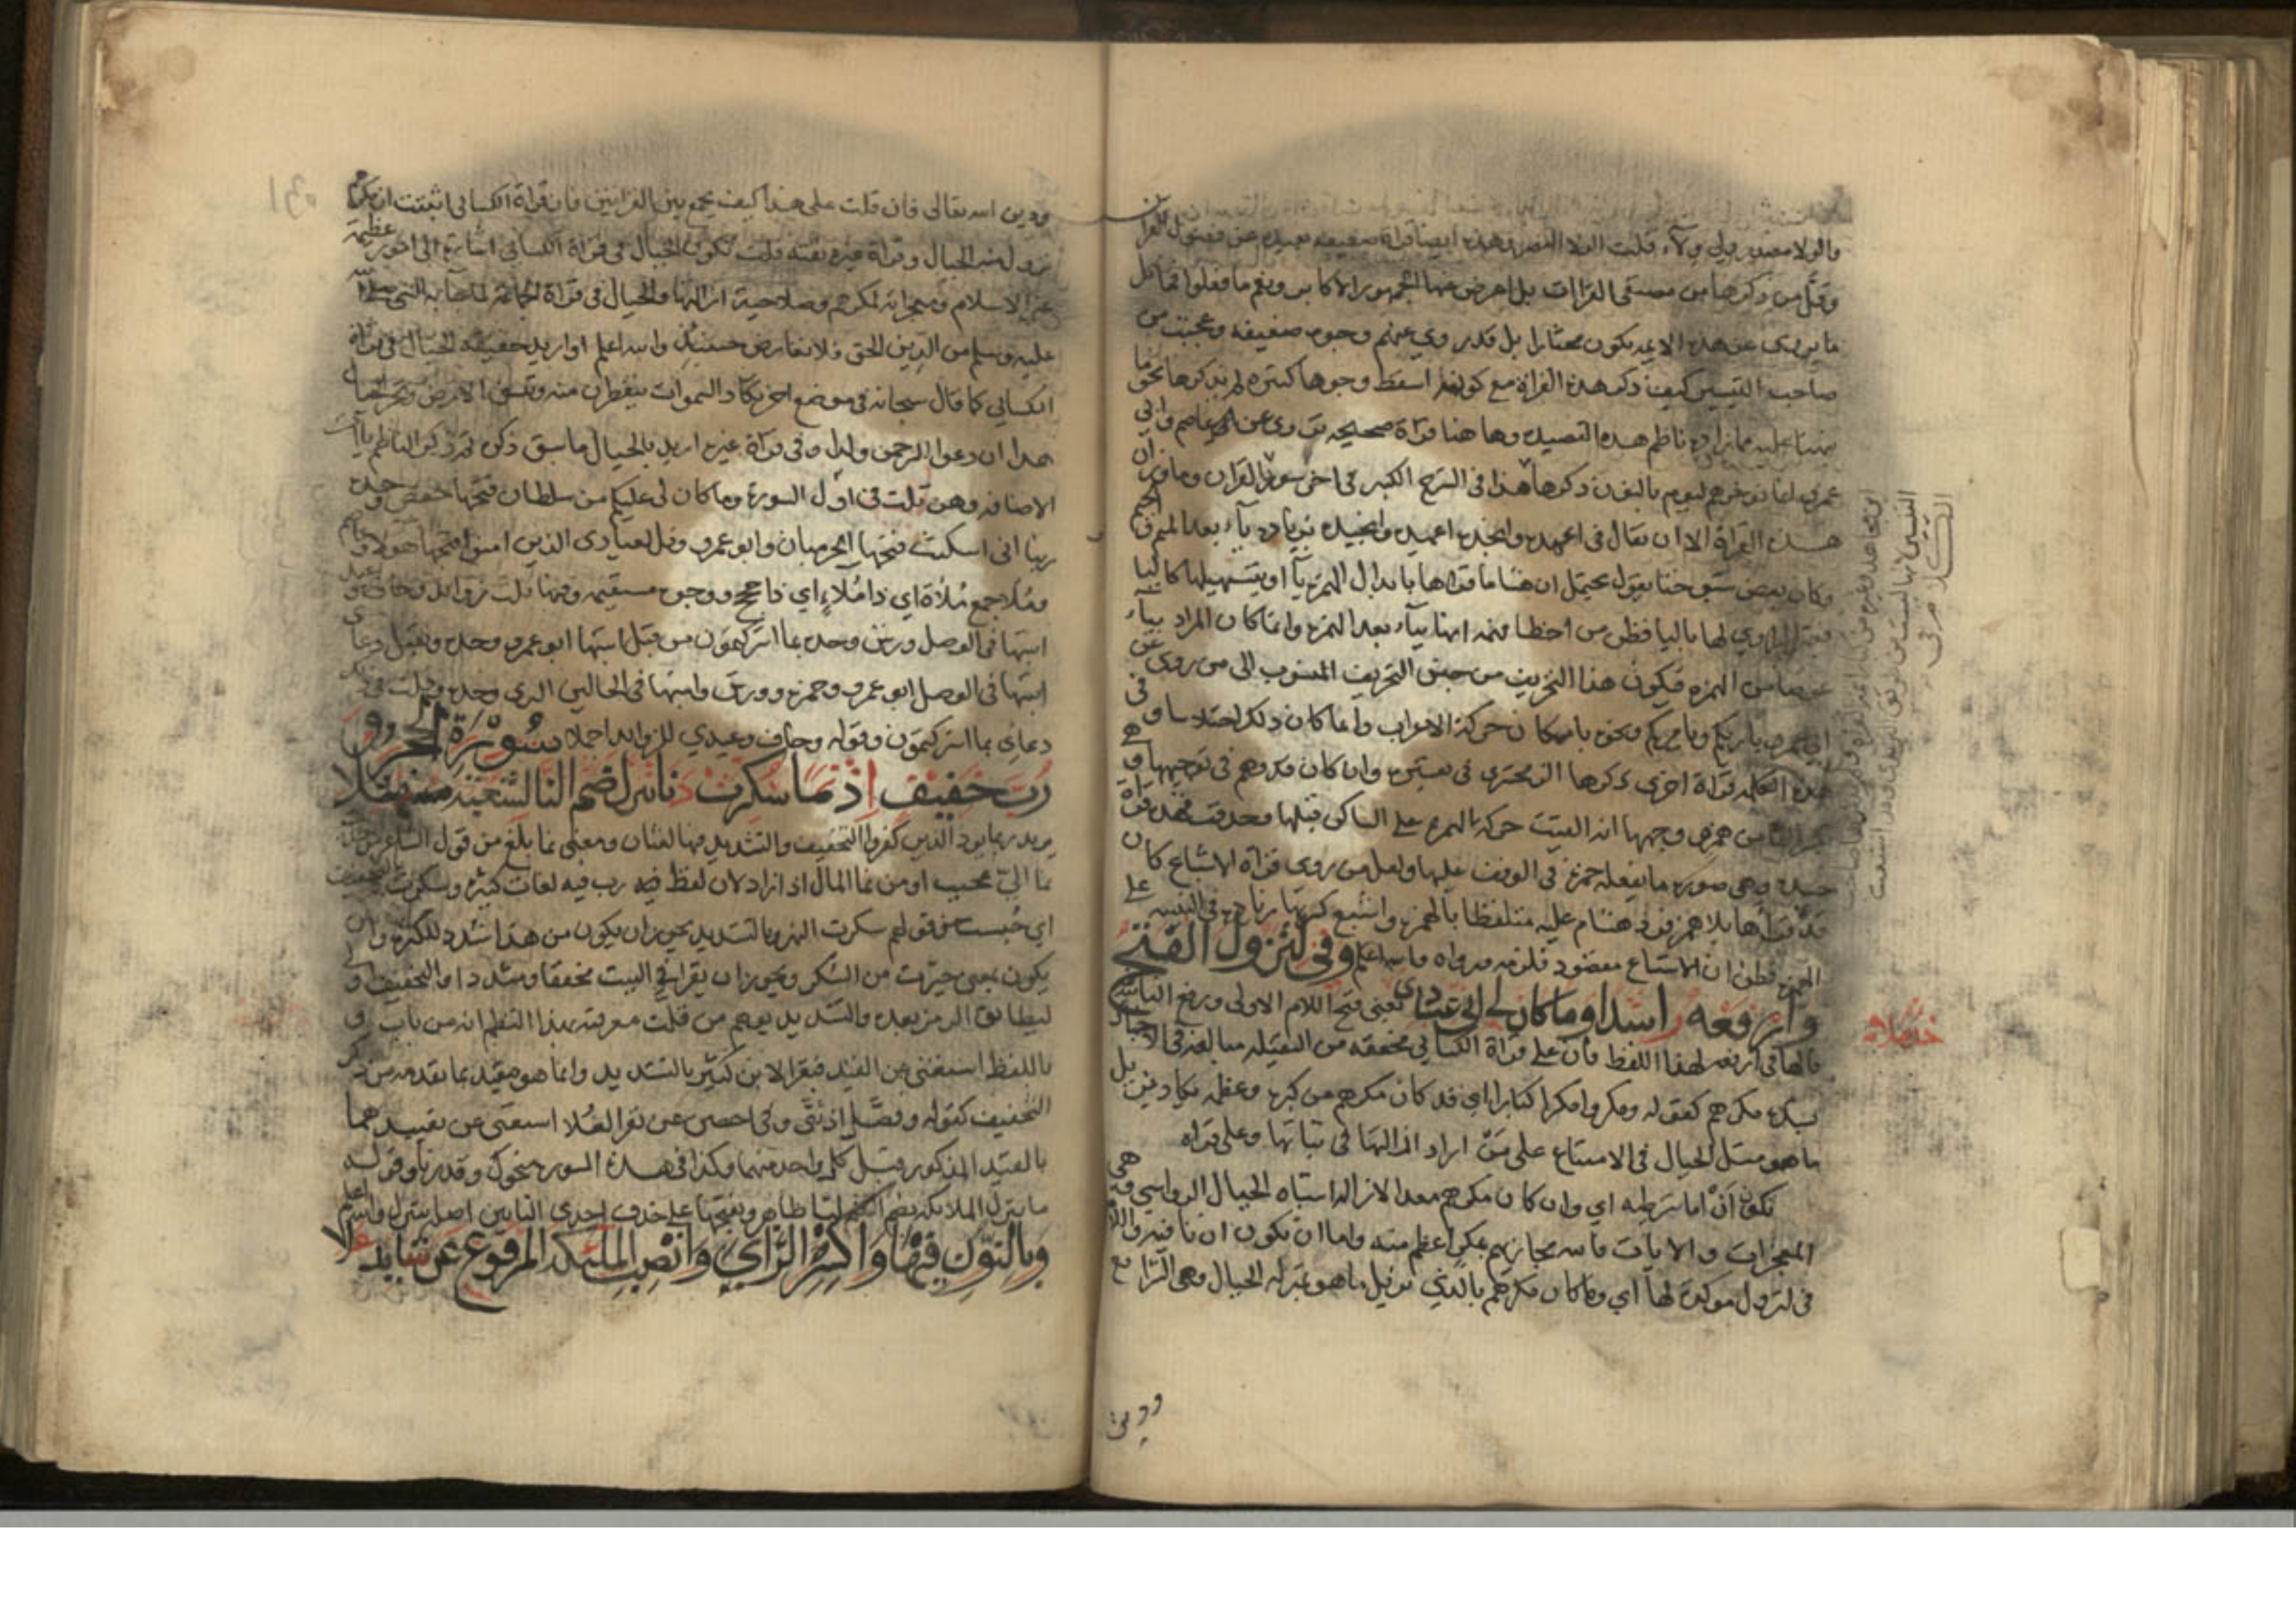 والولا مصدر ولي ولاء قلت الولا النصر وهذه ايضا قراة ضعيفه بعيده عن فصيح
وقل من ذكرها من مصنفي القراات بل اعرض عنها الجمهور الاكابر ونعم ما فعلوا فما كل
ما يروى عن هذه الايمه يكون مختارا بل قد روي عنهم وجوه ضعيفه وعجبت من
صاحب التيسير كيف ذكر هذه القراة مع كونه اسقط وجوها كثيره لم يذكرها نحو ما
نبهنا عليه مما زاده ناظم هذه القصيده وها هنا قراة صحيحه تروى عن عاصم وابي
عمرو انما نوخرهم ليوم بالنون ذكرها هذا في الشرح الكبير في اخر سورة القران وما وزان
هذه القراة الا ان يقال في اعمده وانجده اعميده وانجيده بزيادة ياء بعد الميم والجيم
وكان بعض شيوخنا يقول يحتمل ان هشاما قراها بابدال الهمزة ياء او بتسهيلها كاليا
فعبر الراوي لها باليا فظن من اخطا فهمه انها بياء بعد الهمزه وانما كان المراد بياء
عوضا من الهمزه فيكون هذا التحريف من جنس التحريف المنسوب الى من روى عن
ابي عمرو باريكم ويامريكم ونحوه باسكان حركة الاعراب وانما كان ذلك اختلاسا وفي
هذه الكلمه قراة اخرى ذكرها الزمخشري في تفسيره وان كان قد وهم في توجيهها وهي
وجهها انه القيت حركة الهمزه على الساكن قبلها وحذفت فهذه قراة
جيده وهي صورة ما يفعله حمزة في الوقف عليها ولعل من روى قراة الاشباع كان
قد قراها بلا همز فرد هشام عليه متلفظا بالهمزه واشبع كسرتها زيادة في التنبيه على
الهمز فظن ان الاشباع مقصود فلزمه ورواه والله اعلم وفي لتزول الفتح
وارفعه راشدا وما كان لي اني عبادي يعني فتح اللام الاولى ورفع الثانيه
فالها في ارفعه لهذا اللفظ فان على قراة الكسائي مخففه من الثقيله مبالغه في الاخبار
بشدة مكرهم كقوله ومكروا مكرا كبارا اي قد كان مكرهم من كبره وعظمه يكاد يزيل
ما هو مثل الجبال في الامتناع على من اراد ازالتها في ثباتها وعلى قراة
تكون ان اما شرطيه اي وان كان مكرهم معدا لازالة اشباه الجبال الرواسي وهي
المعجزات والايات فالله مجازيهم بمكر اعظم منه واما ان تكون ان نافيه واللام
في لتزول موكدة لها اي وما كان مكرهم بالذي تزيل ما هو بمنزلة الجبال وهي الشرايع
ودين
ودين الله تعالى فان قلت على هذا كيف يجمع بين القراتين فان قراة الكسائي اثبتت ان مكرهم
تزول منه الجبال وقراة غيره نفته قلت تكون الجبال في قراة الكسائي اشارة الى امور عظيمه
غير الاسلام ومعجزاته لمكرهم وصلاحية ازالتها والجبال في قراة الجماعة لما جا به النبي صلى الله
عليه وسلم من الدين الحق فلا تعارض حينئذ والله اعلم او اريد حقيقة الجبال في قراة
الكسائي كما قال سبحانه في موضع اخر تكاد السموات يتفطرن منه وتنشق الارض وتخر الجبال
هدا ان دعوا للرحمن ولدا وفي قراة غيره اريد بالجبال ما سبق ذكره ثم ذكر الناظم ياآت
الاضافه وهن ثلث في اول السورة وما كان لي عليكم من سلطان فتحها حفص وحده
ربنا اني اسكنت فتحها الحرميان وابو عمرو وقل لعبادي الذين امنوا فتحها هولا وعاصم
وملا جمع ملاة اي ذا ملاء اي ذا حجج ووجوه مستقيمه وفيها ثلث زوائد وخاف وعيد
اثبتها في الوصل ورش وحده بما اشركتمون من قبل اثبتها ابو عمرو وحده وتقبل دعاي
اثبتها في الوصل ابو عمرو وحمزه وورش واثبتها في الحالين البزي وحده وقلت في ذلك
دعاي بما اشركتمون وقوله وخاف وعيدي للزوايد اجملا سورة الحجر
ورب خفيف اذ نما سكرت دنا تنزل ضم التا لشعبة مثلا
يريد ربما يود الذين كفروا التخفيف والتشديد فيها لغتان ومعنى نما بلغ من قول الشاعر
نما اليّ محبب او من نما المال اذا زاد لان لفظ رب فيه لغات كثيره وسكرت بالتخفيف
اي حُبست من قولهم سكرت النهر وبالتشديد يجوز ان يكون من هذا شدد للكثره وان
يكون بمعنى حيرت من السكر ويجوز ان يقرا في البيت مخففا ومشددا والتخفيف اولى
ليطابق الرمز بعده والتشديد يوهم من قلت معرفته بهذا النظم انه من باب
باللفظ استغنى عن القيد فيقرا لابن كثير بالتشديد وانما هو مقيد بما تقدمه من ذكر
التخفيف كقوله وفصل اذ ثنى وفي احصن عن نفر العلا استغنى عن تقييدهما
بالقيد المذكور قبل كل واحد منهما وكذا في هذه السورة منجوك وقدرنا وقوله
ما ينزل الملايكة بضم التا ظاهر وبفتحها على حذف احدى التاين اصله تتنزل والله اعلم
وبالنون فيها واكسر الزاي وانصب الملئكة المرفوع عن شايد علا